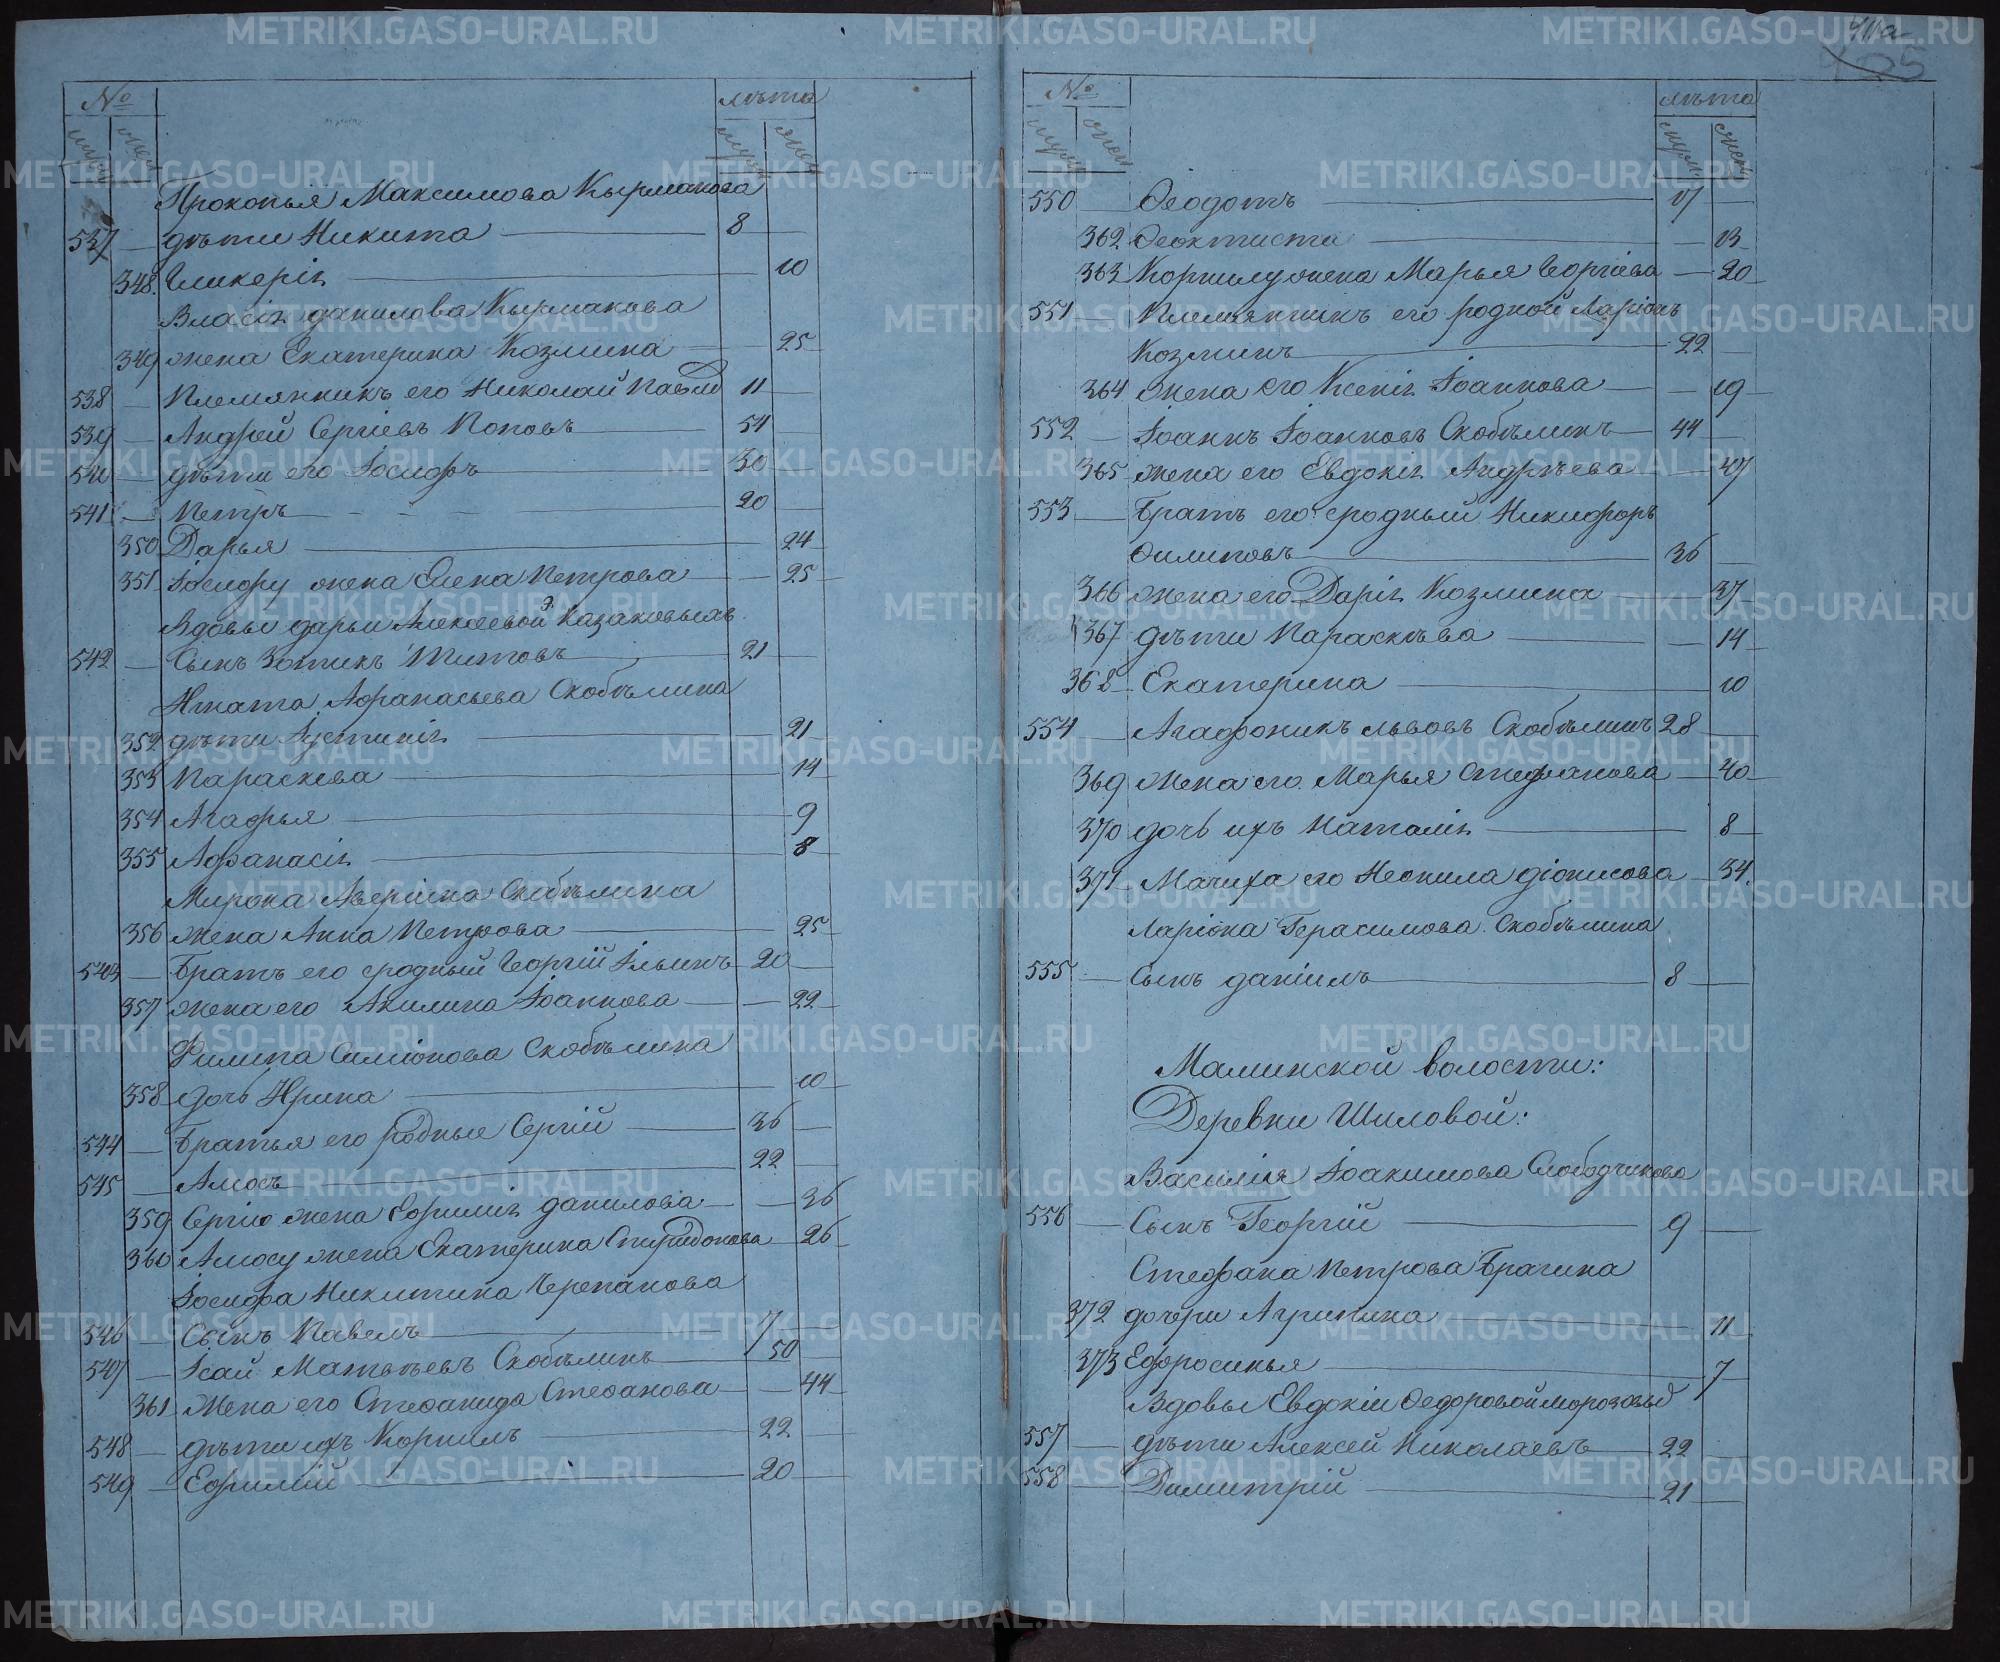 № лѣта
муж жен муж жен
Прокопья Максимова Кырмакова
537 — дѣти Никита — 8 —
348. Гликеріѧ — 10
Власіѧ данилова Кырмакова
349 жена Екатерина Козмина — 25
538 — Племянникъ его Николай Павлов 11 —
539 — Андрей Сергіевъ Поповъ — 54 —
540 — дѣти его Іосифъ — 30 —
541 — Петръ — 20 —
350 Дарья — 24
351 Іосифу жена Елена Петрова — 25
Вдовы дарьи Алексеевой Казаковыхъ
542 — Сынъ Зотикъ Титовъ — 21 —
Игната Афанасьева Скобѣлина
352 дѣти Іустиніѧ — 21
353 Параскева — 14
354 Агафья — 9
355 Афанасіѧ — 8
Мирона Аверкина Скобѣлина
356 жена Анна Петрова — 25
543 — Братъ его сродный Георгій Ильинъ — 20 —
357 жена его Акилина Іоаннова — 22
Филипа Симіонова Скобѣлина
358 дочь Ирина — 10
544 — Братья его родные Сергій — 36 —
545 — Амосъ — 22 —
359 Сергію жена Ефиміѧ данилова — 36
360 Амосу жена Екатерина Спиридонова — 26
Іосифа Никитина Черепанова
546 — Сынъ Павелъ — 7 —
547 — Ісай Матвѣевъ Скобѣлинъ — 50 —
361 Жена его Стефанида Стефанова — 44
548 — дѣти ихъ Корнилъ — 22 —
549 — Ефимій — 20 —
№ лѣта
муж жен муж жен
550 — Ѳеодотъ — 17 —
362 Ѳеоктиста — 13
363 Корнилу жена Марья Георгіева — 20
551 — Племянникъ его родной Ларіонъ
Козминъ — 22 —
364 жена его Ксеніѧ Іоаннова — 19
552 — Іоаннъ Іоанновъ Скобѣлинъ — 44 —
365 жена его Евдокіѧ Андрѣева — 47
553 — Братъ его сродный Никифоръ
Филиповъ — 36 —
366 жена его Даріѧ Козмина — 37
367 дѣти Параскѣва — 14
368 Екатерина — 10
554 — Агафоникъ львовъ Скобѣлинъ 28 —
369 жена его Марья Стефанова — 40
370 дочь ихъ Наталіѧ — 8
371 Мачиха его Неонила діонисова — 54.
Ларіона Герасимова Скобѣлина
555 — Сынъ даніилъ — 8 —
Маминской волости:
Деревни Шиловой:
Василия Іоакимова Слободчикова
556 — Сынъ Георгій — 9 —
Стефана Петрова Брагина
372 дочери Агрипина — 11
373 Ефросинья — 7
Вдовы Евдокіи Федоровой морозовой
557 — дѣти Алексей Николаевъ — 22 —
558 — Димитрій — 21 —
METRIKI.GASO-URAL.RU